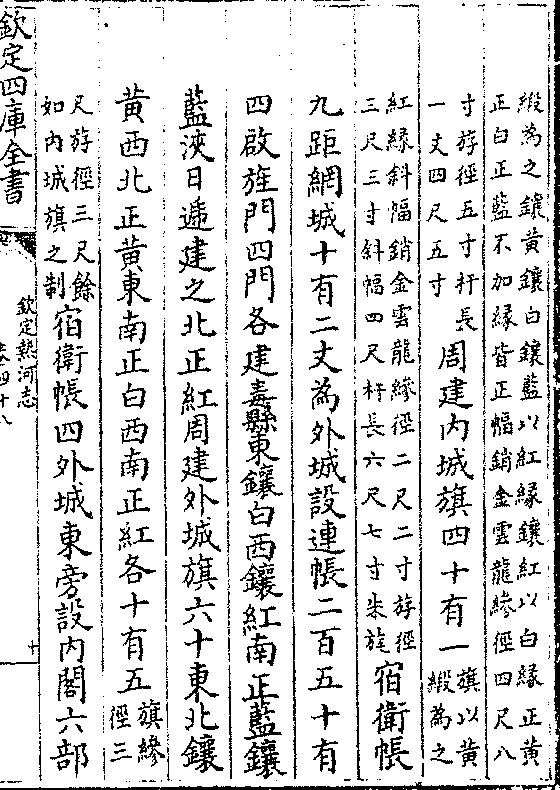 緞為之鑲黃鑲白鑲藍以紅緣鑲紅以白緣正黃
正白正藍不加緣皆正幅銷金雲龍縿徑四尺八
寸斿徑五寸杆長
一丈四尺五寸
周建内城旗四十有一
旗以黃
緞為之
紅緣斜幅銷金雲龍縿徑二尺二寸斿徑
三尺三寸斜幅四尺杆長六尺七寸朱旄
宿衛帳
九距網城十有二丈為外城設連帳二百五十有
四啟旌門四門各建纛縣東鑲白西鑲紅南正藍鑲
藍浹日遞建之北正紅周建外城旗六十東北鑲
黃西北正黃東南正白西南正紅各十有五
旗縿
徑三
尺斿徑三尺餘
如内城旗之制
宿衛帳四外城東旁設内閣六部
欽定四庫全書
欽定熱河志
卷四十八